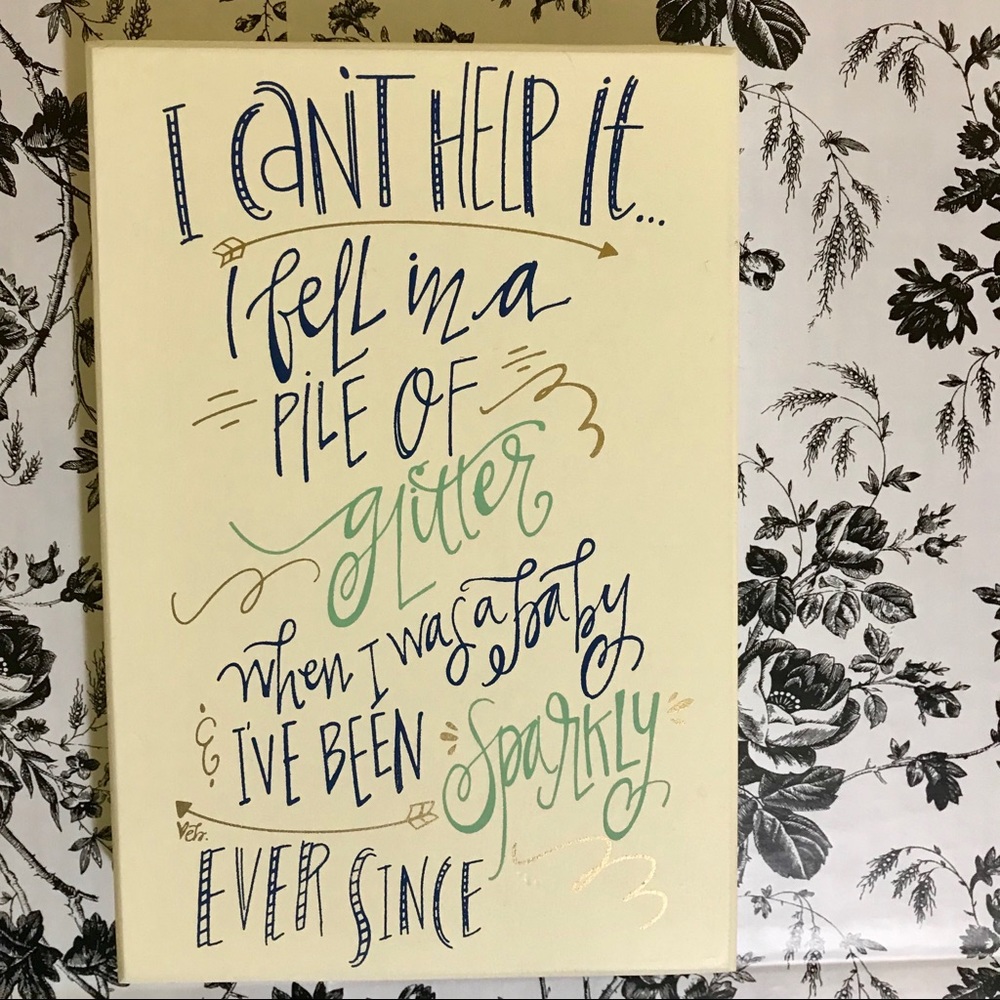 I CaN'T HELP It...
I fell in a
PILE OF
glitter
when I was a baby
& I'VE BEEN sparkly
EVER SINCE